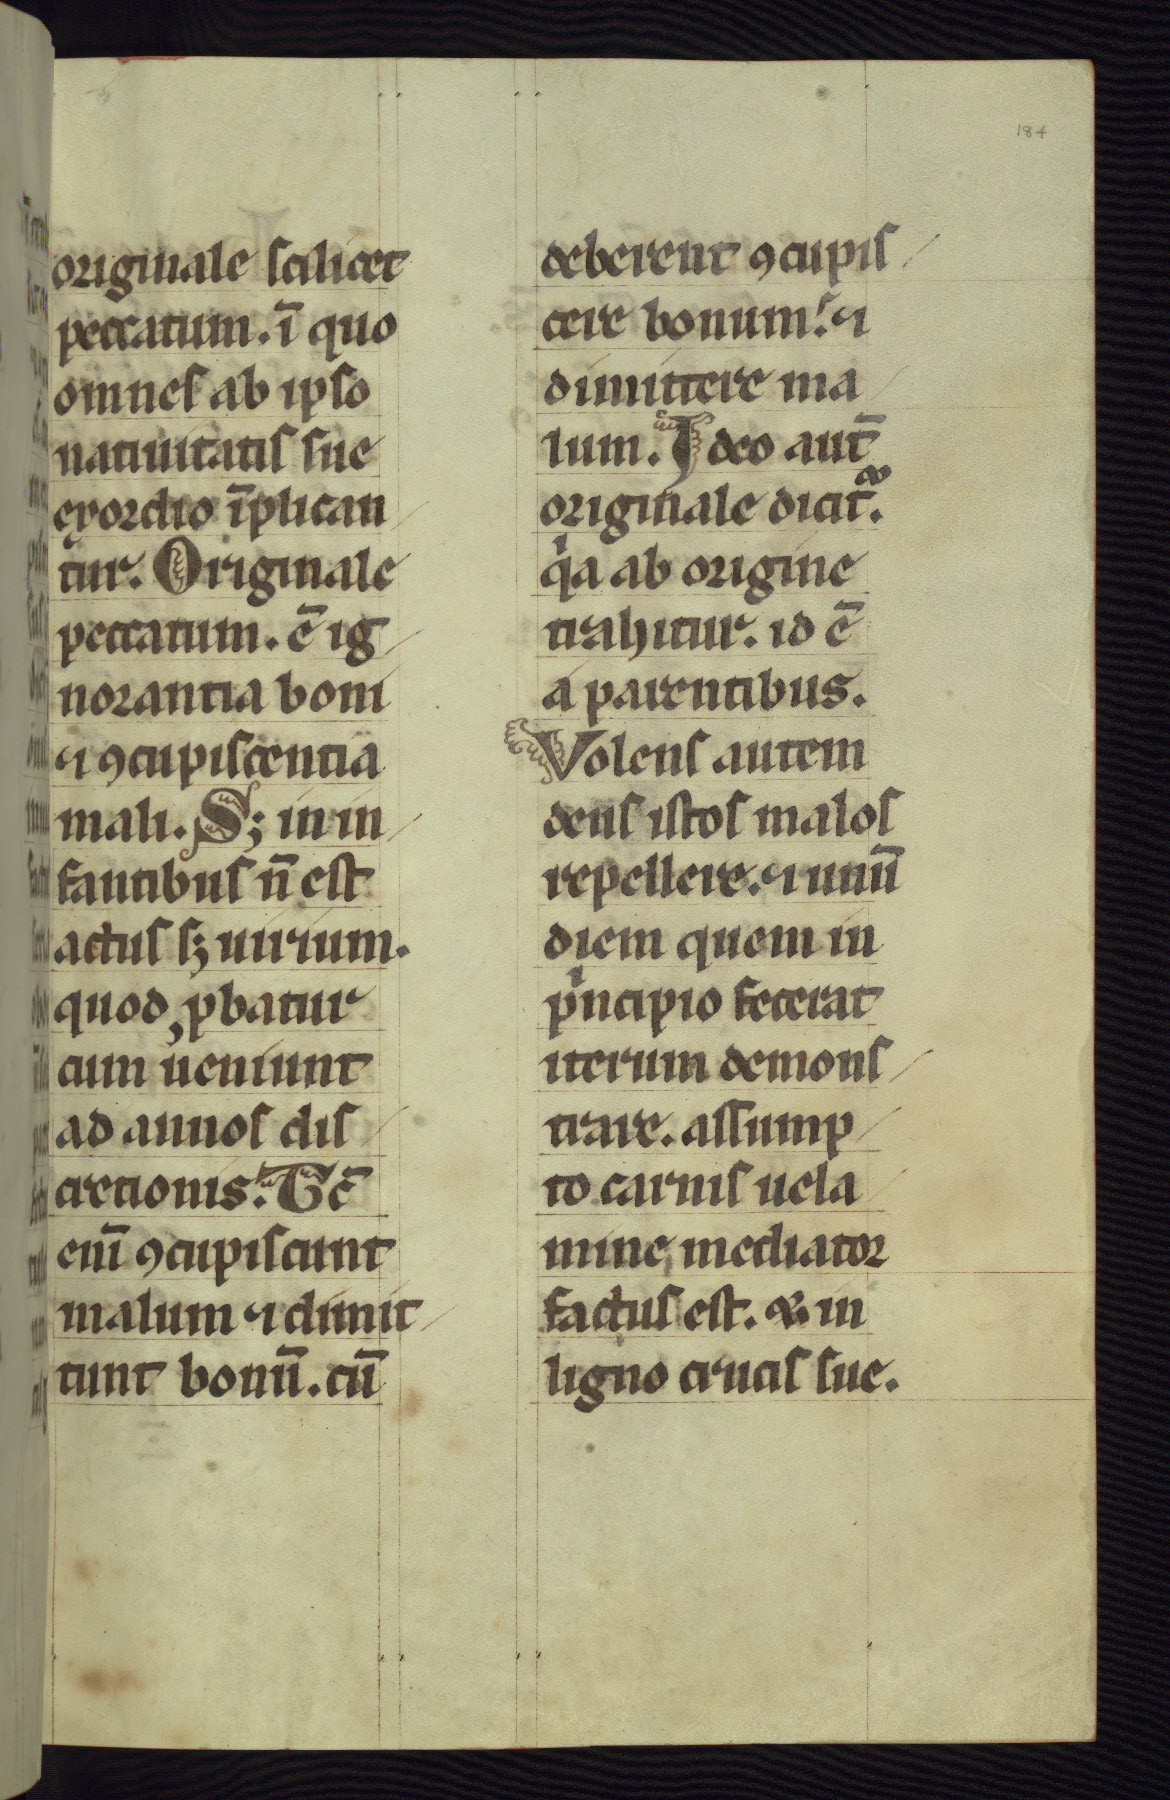 184
originale scilicet
peccatum. ī quo
omnes ab ipso
natiuitatis sue
exordio īplican
tur. Originale
peccatum. ē ig
norantia boni
⁊ ꝯcupiscentia
mali. Sꝫ in in
fantibus n̄ est
actus sꝫ uirium.
quod ꝓbatur
cum ueniunt
ad annos dis
cretionis. Tc̄
eni̅ ꝯcupiscunt
malum ⁊ dimit
tunt bonū. cū
deberent ꝯcupis
cere bonum. ⁊
dimittere ma
lum. Ideo aut̄
originale dicit᷑.
qͥa ab origine
trahitur. id ē
a parentibus.
Volens autem
deus istos malos
repellere. ⁊ unū
diem quem in
pͥncipio fecerat
iterum demons
trare. assump
to carnis uela
mine, mediator
factus est. & in
ligno crucis sue.